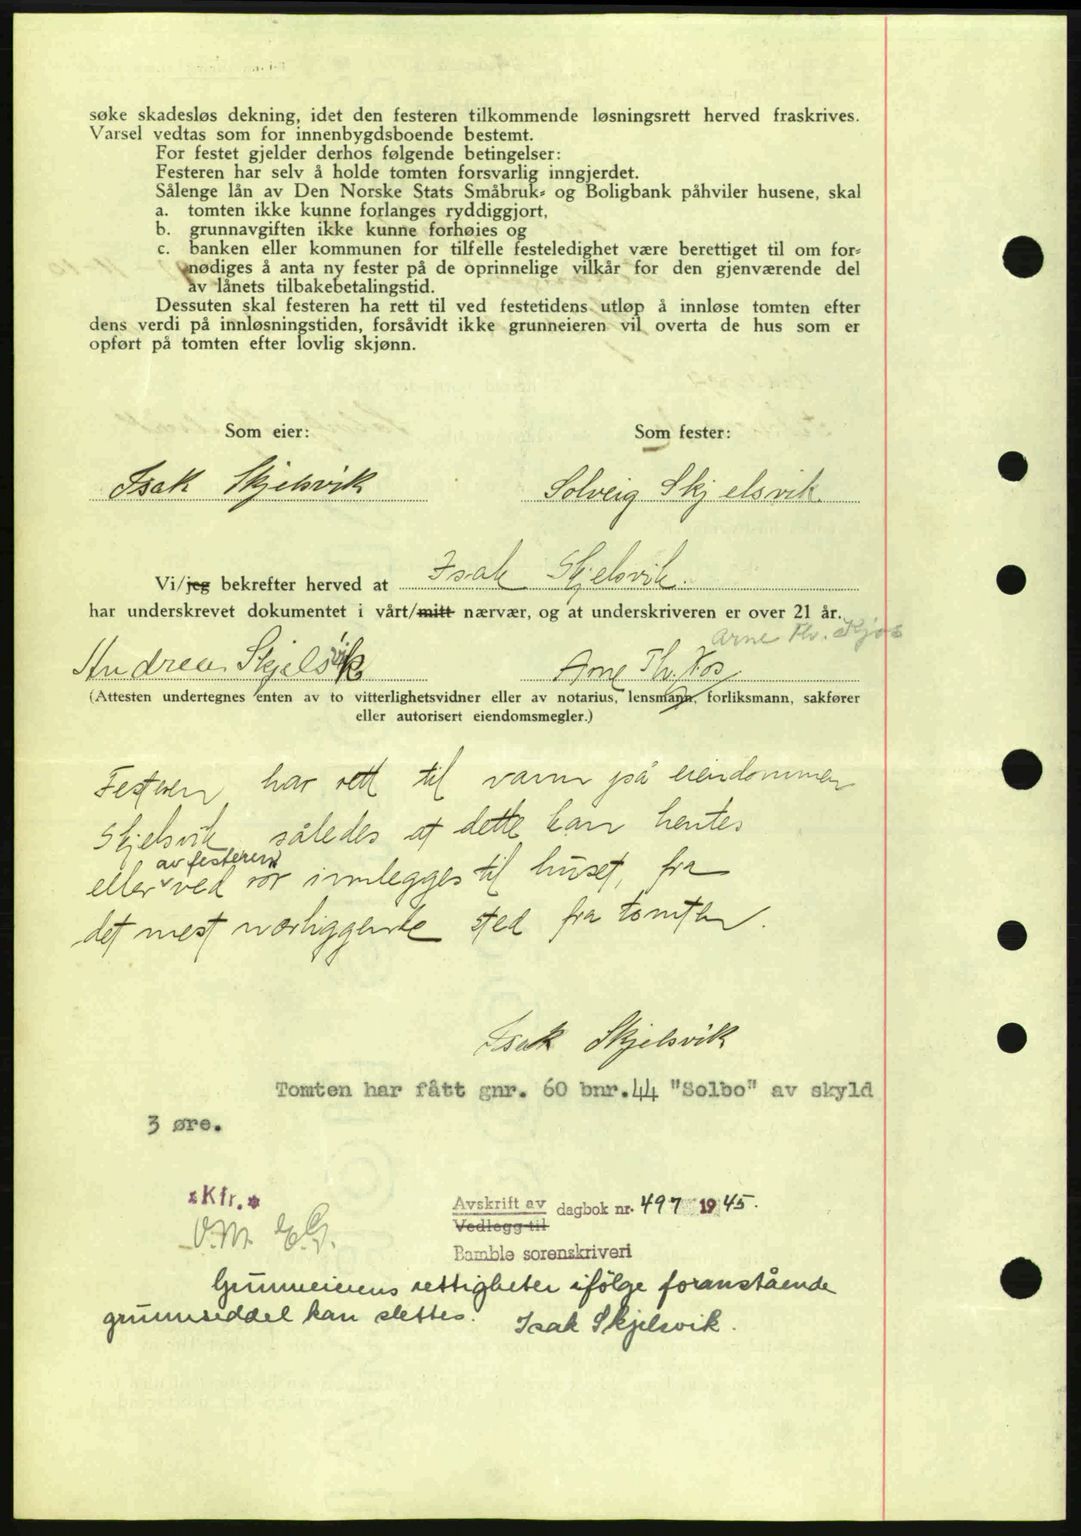 søke skadesløs dekning, idet den festeren tilkommende løsningsrett herved fraskrives.
Varsel vedtas som for innenbygdsboende bestemt.
For festet gjelder derhos følgende betingelser:
Festeren har selv å holde tomten forsvarlig inngjerdet.
Sålenge lån av Den Norske Stats Småbruk- og Boligbank påhviler husene, skal
a. tomten ikke kunne forlanges ryddiggjort,
b. grunnavgiften ikke kunne forhøies og
c. banken eller kommunen for tilfelle festeledighet være berettiget til om for-
nødiges å anta ny fester på de oprinnelige vilkår for den gjenværende del
av lånets tilbakebetalingstid.
Dessuten skal festeren ha rett til ved festetidens utløp å innløse tomten efter
dens verdi på innløsningstiden, forsåvidt ikke grunneieren vil overta de hus som er
opført på tomten efter lovlig skjønn.
Som eier: Som fester:
Isak Skjelsvik Solveig Skjelsvik
Vi/jeg bekrefter herved at Isak Skjelsvik.
har underskrevet dokumentet i vårt/mitt nærvær, og at underskriveren er over 21 år.
Arne Th. Kjos
Andrea Skjelsvik Arne Th. Kos
(Attesten undertegnes enten av to vitterlighetsvidner eller av notarius, lensmann, forliksmann, sakfører
eller autorisert eiendomsmegler.)
Festeren har rett til vann på eiendommen
Skjelsvik således at dette kan hentes
av festeren
eller ved rør innlegges til huset, fra
det mest nærliggende sted fra tomten.
Isak Skjelsvik
Tomten har fått gnr. 60 bnr. 44 "Solbo" av skyld
3 øre.
*Kfr.*
Avskrift av dagbok nr. 497 1945.
Vedlegg til
Bamble sorenskriveri
Grunneierens rettigheter ifølge foranstående
grunnseddel kan slettes. Isak Skjelsvik.